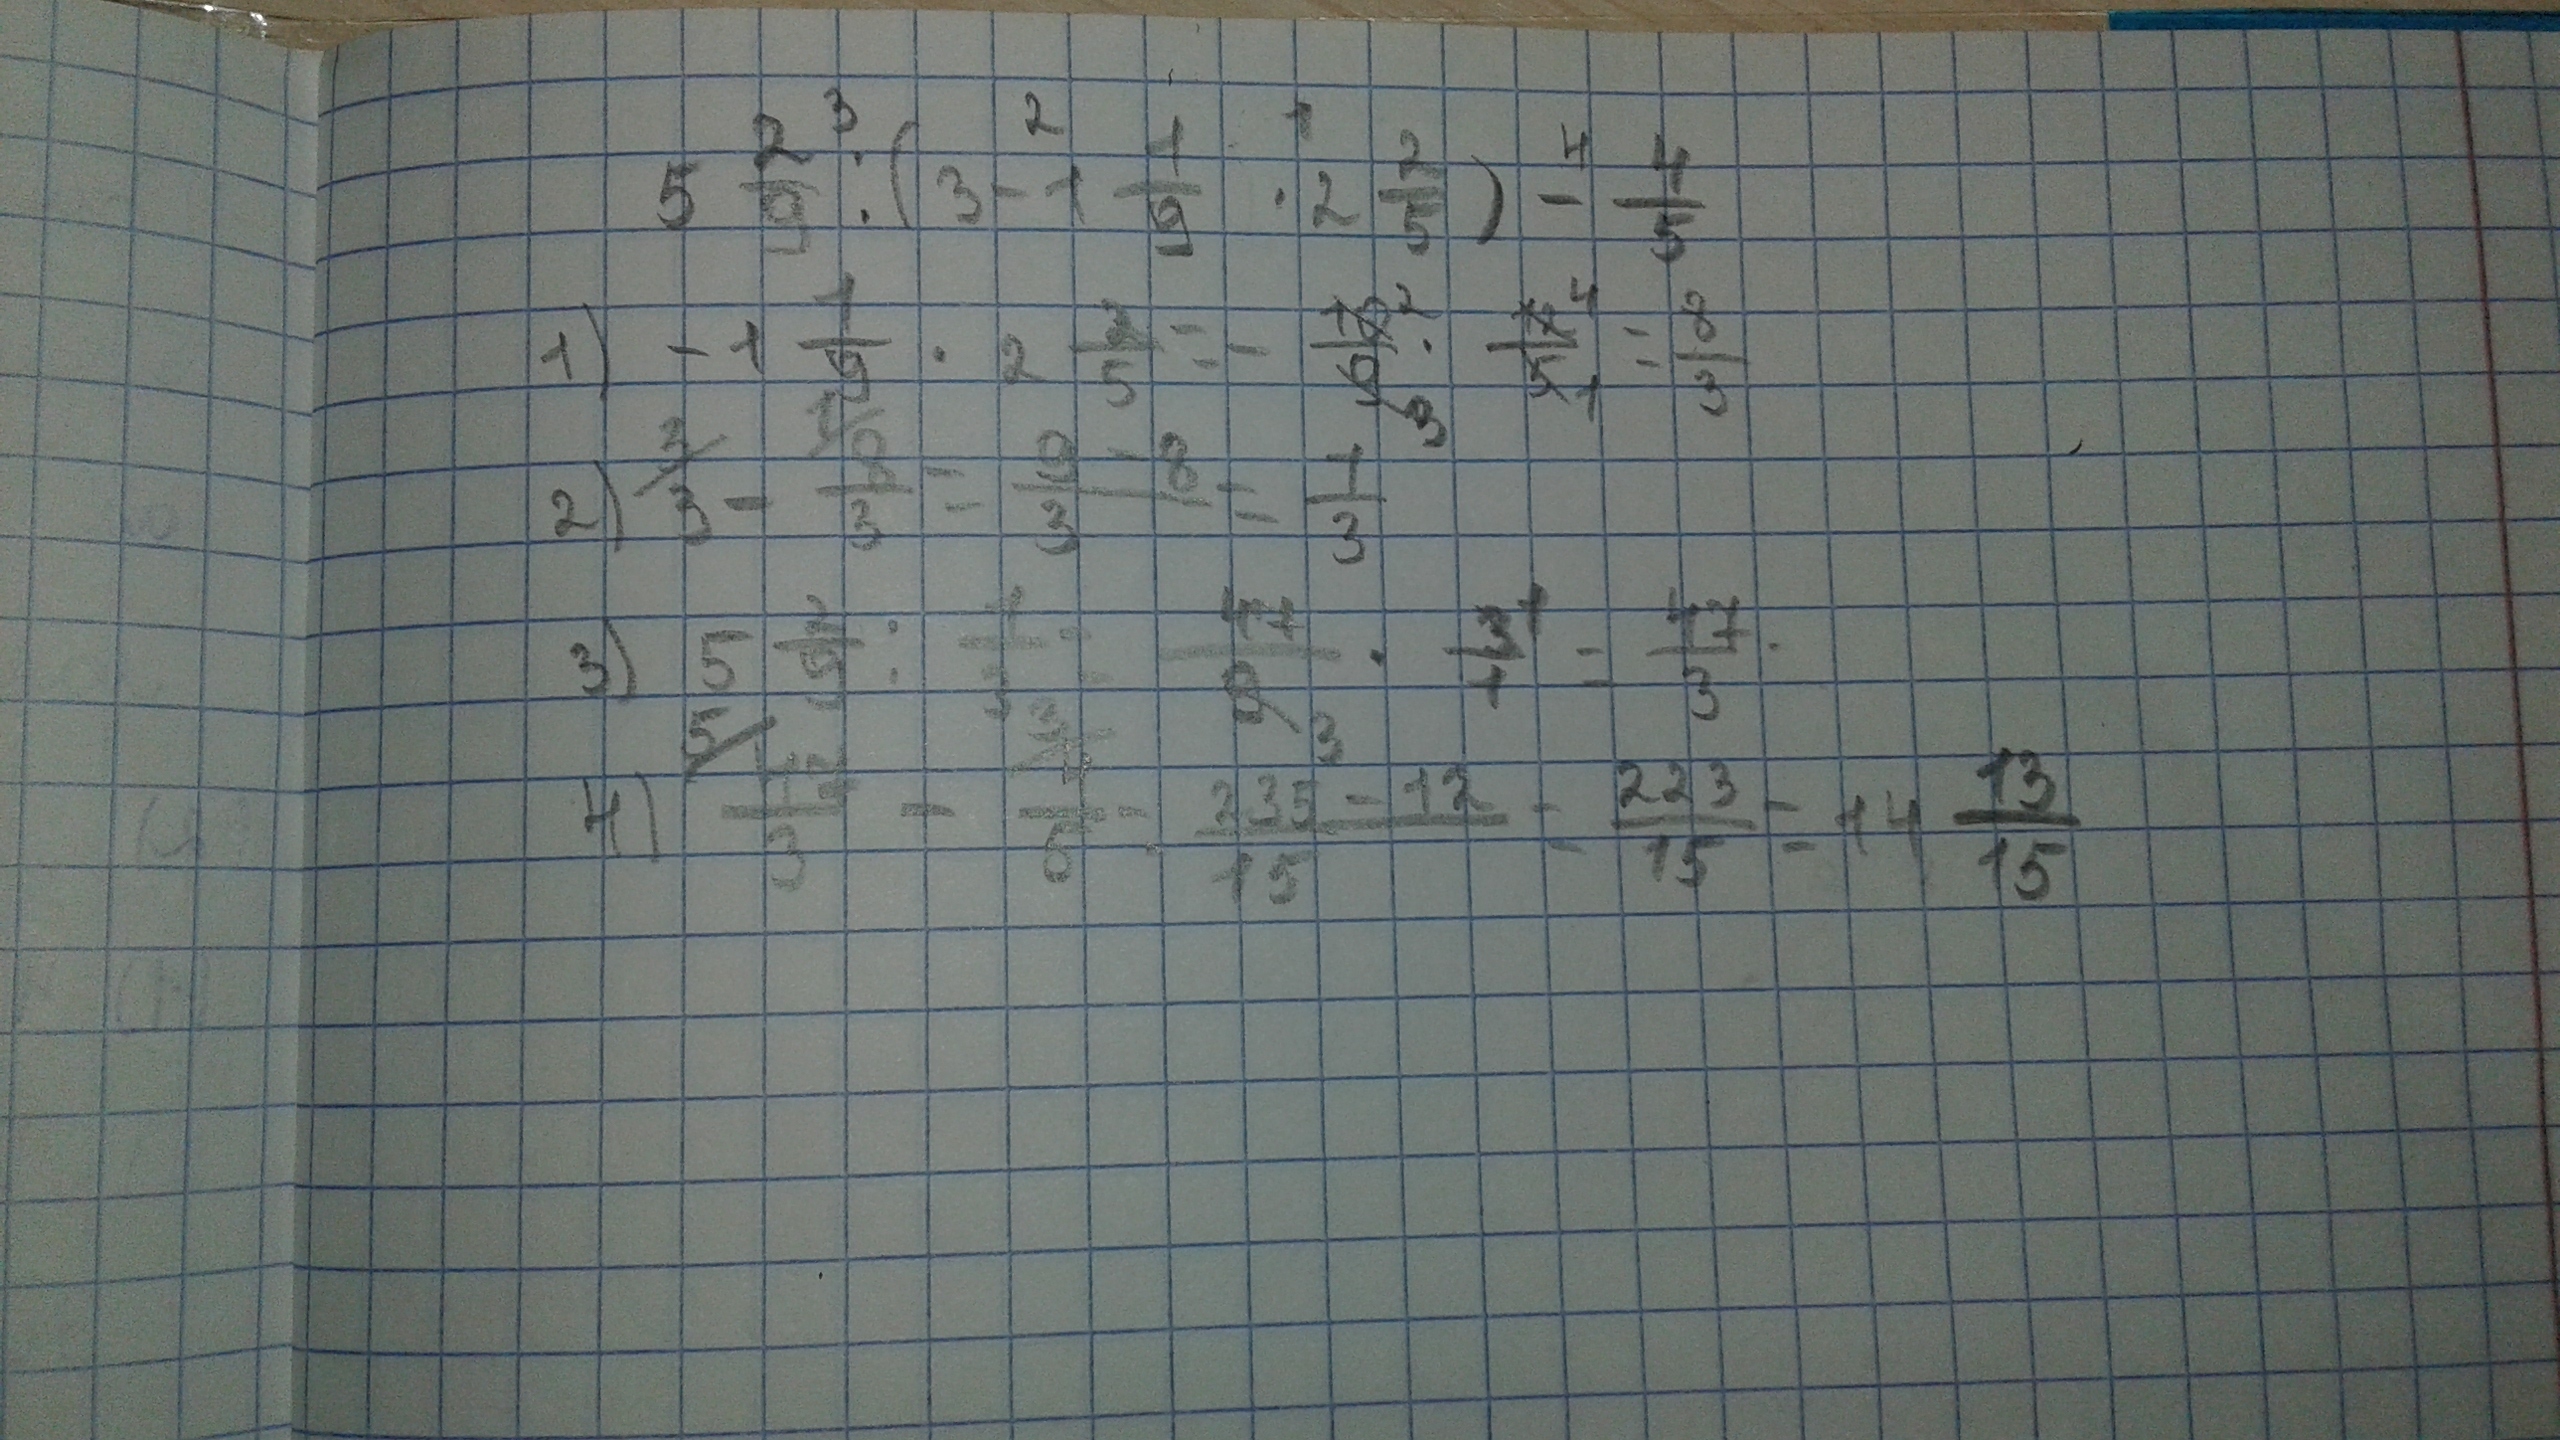 5 2/9 :³ (3 -² 1 1/9 ·¹ 2 2/5) -⁴ 4/5
1) -1 1/9 · 2 2/5 = - 10²/9₃ · 12⁴/5₁ = 8/3
2) ³⁄3 - ¹⁄8/3 = 9-8/3 = 1/3
3) 5 2/9 : 1/3 = 47/9₃ · 3¹/1 = 47/3 .
4) ⁵⁄47/3 - ³⁄4/5 = 235-12/15 = 223/15 = 14 13/15